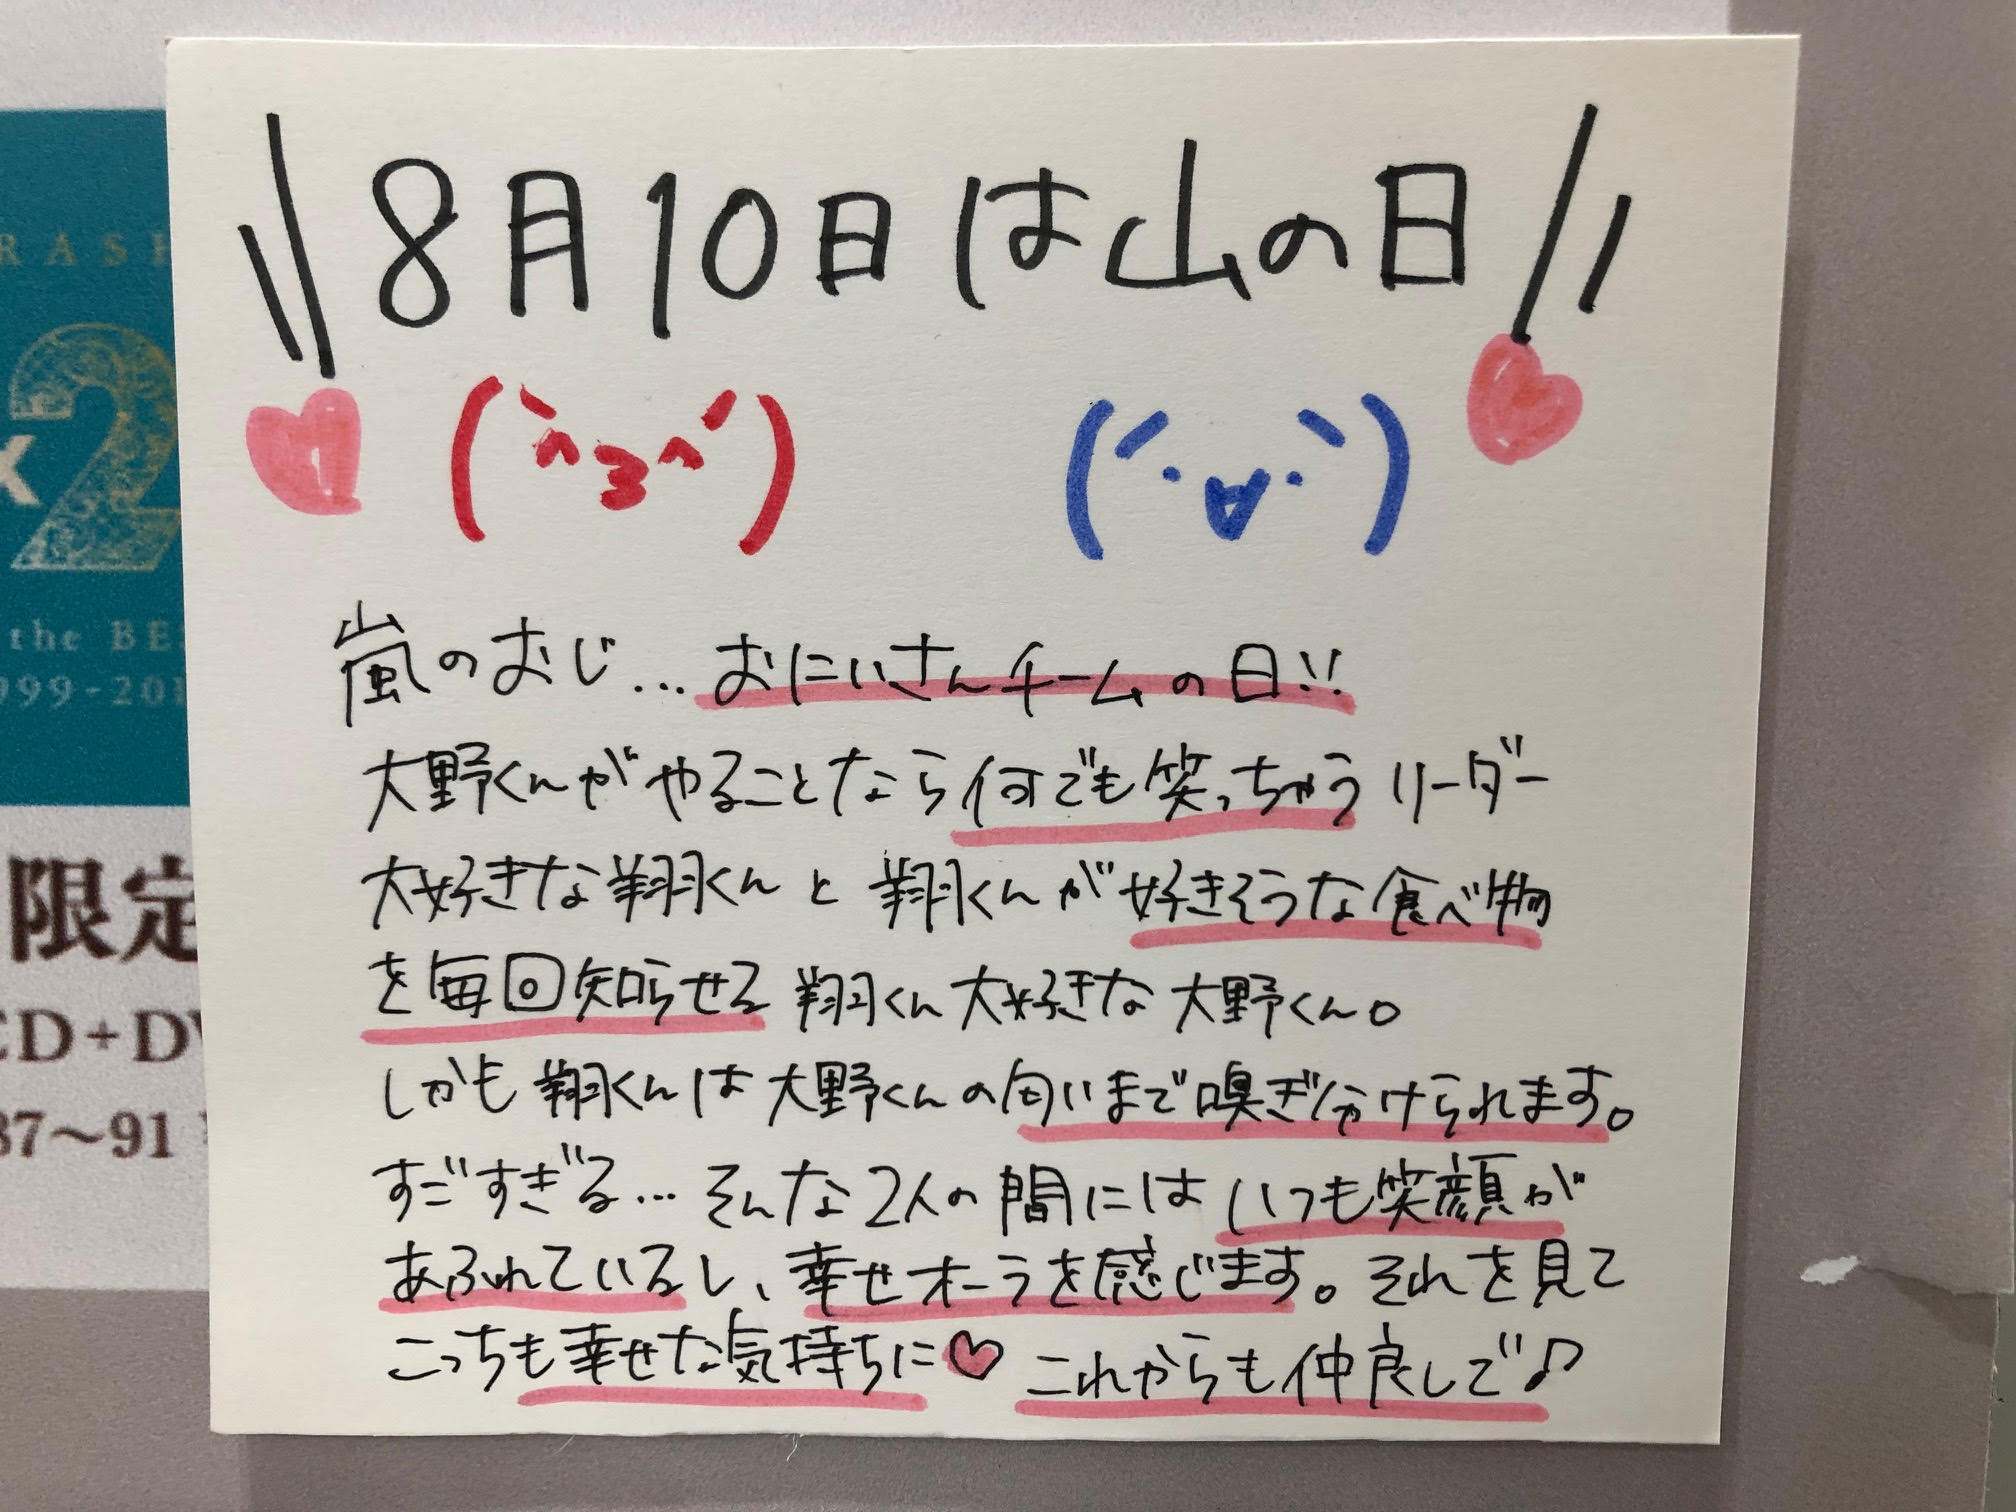 8月10日は山の日
(`^3^´) (´・∀・`)
嵐のおじ…おにいさんチームの日!!
大野くんがやることなら何でも笑っちゃうリーダー
大好きな翔くんと翔くんが好きそうな食べ物
を毎回知らせる翔くん大好きな大野くん。
しかも翔くんは大野くんの匂いまで嗅ぎ分けられます。
すごすぎる…そんな2人の間にはいつも笑顔が
あふれているし、幸せオーラを感じます。それを見て
こっちも幸せな気持ちに♡これからも仲良しで♪
RASH
x2
the BES
999-201
限定
CD+DV
87～91